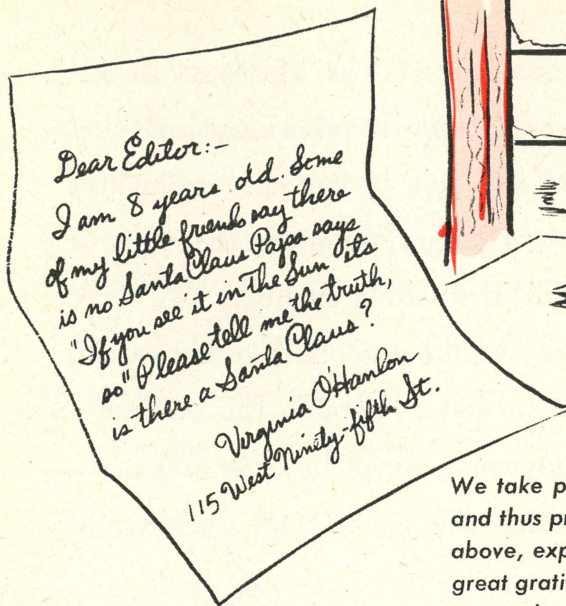 Dear Editor:—
I am 8 years old. Some
of my little friends say there
is no Santa Claus Papa says
"If you see it in the Sun its
so" Please tell me the truth,
is there a Santa Claus?
Virginia O'Hanlon
115 West Ninety-fifth St.
We take p
and thus pr
above, exp
great grati